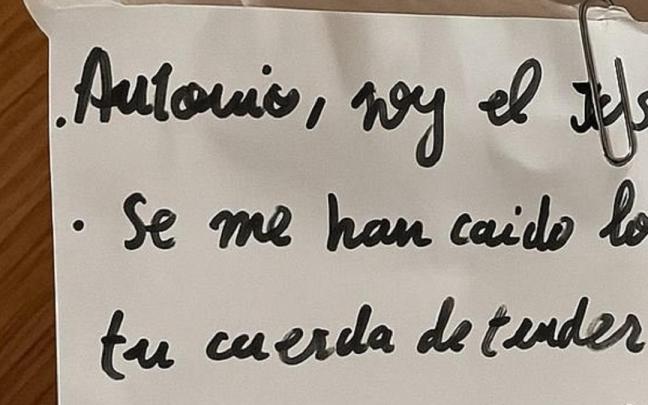 . Antonio, soy el
· Se me han caido lo
tu cuerda de tender